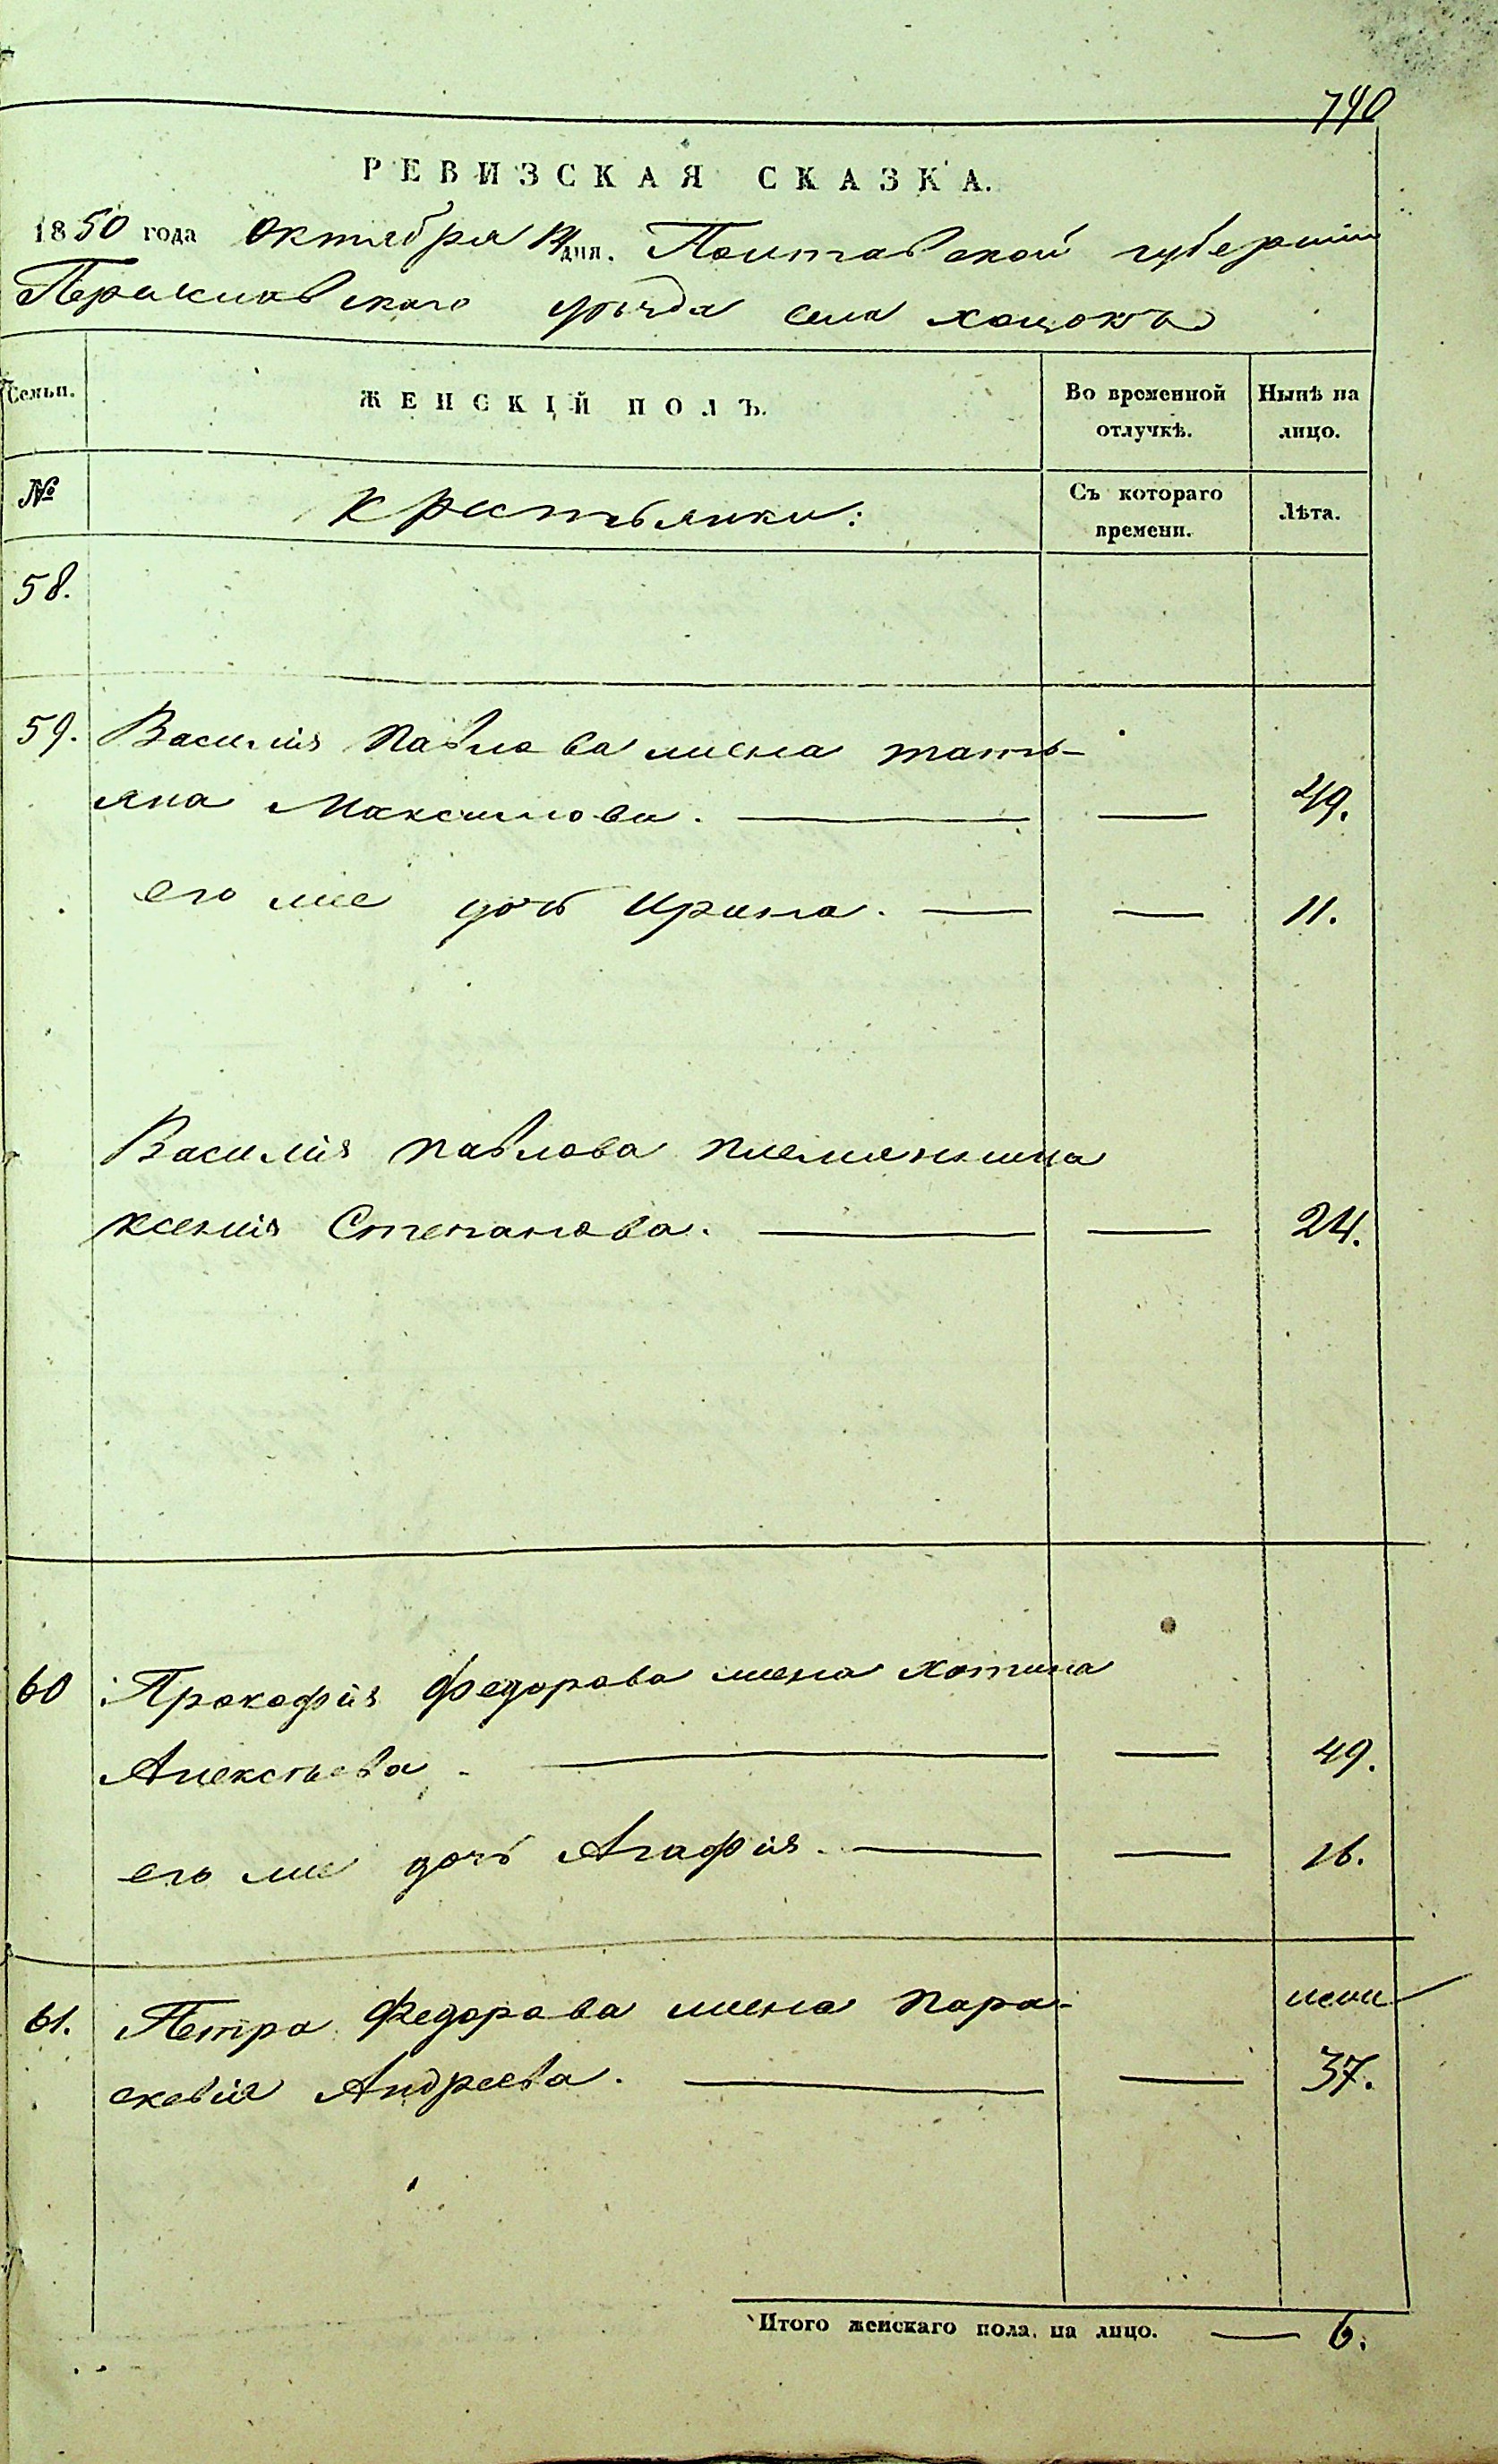 740
РЕВИЗСКАЯ СКАЗКА.
1850 года Октября 14 дня. Полтавской губернии
Переяславскаго уѣзда села хоцокъ
Семьи. ЖЕНСКІЙ ПОЛЪ. Во временной отлучкѣ. Нынѣ на лицо.
№ крестьянки: Съ котораго времени. Лѣта.
58.
59. Василія Павлова жена тать-
яна Максимова. — — 49.
его же дочь Ирина. — — 11.
Василія павлова племянница
ксенія Степанова. — — 24.
60 Прокофія Федорова жена хотина
Алексѣева. — — 49.
его же дочь Агафія. — — 16.
61. Петра Федорова жена пара-
скевія Андреева. — — 37.
Итого женскаго пола, на лицо. — 6.